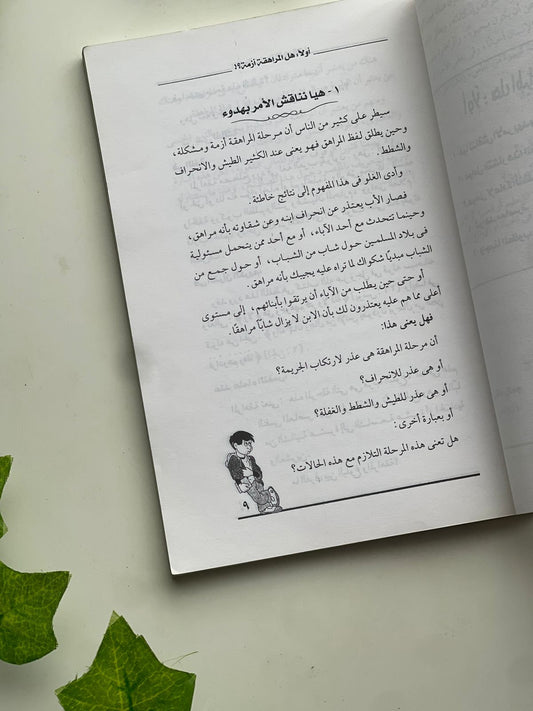 أولاً: هل المراهقة أزمة؟!
١ - هيا نناقش الأمر بهدوء
سيطر على كثير من الناس أن مرحلة المراهقة أزمة ومشكلة،
وحين يطلق لفظ المراهق فهو يعنى عند الكثير الطيش والانحراف
والشطط.
وأدى الغلو فى هذا المفهوم إلى نتائج خاطئة.
فصار الأب يعتذر عن انحراف ابنه وعن شقاوته بأنه مراهق،
وحينما تتحدث مع أحد الآباء، أو مع أحد ممن يتحمل مسئولية
فى بلاد المسلمين حول شاب من الشباب، أو حول جمع من
الشباب مبديًا شكواك لما تراه عليه يجيبك بأنه مراهق.
أو حتى حين يطلب من الآباء أن يرتقوا بأبنائهم، إلى مستوى
أعلى مما هم عليه يعتذرون لك بأن الابن لا يزال شابًا مراهقًا.
فهل يعنى هذا:
أن مرحلة المراهقة هى عذر لارتكاب الجريمة؟
أو هى عذر للانحراف؟
أو هى عذر للطيش والشطط والغفلة؟
أو بعبارة أخرى:
هل تعنى هذه المرحلة التلازم مع هذه الحالات؟
٩